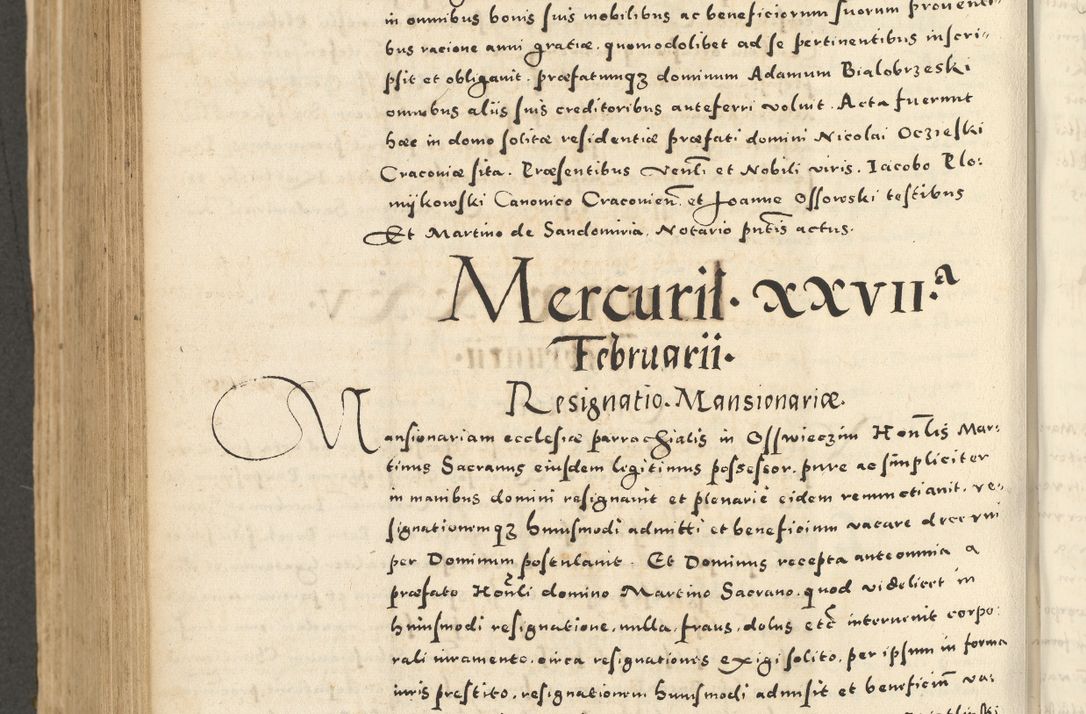 in omnibus bonis suis mobilibus ac beneficiorum suorum proventi-
bus racione anni gratiæ, quomodolibet ad se pertinentibus inscri-
psit et obligavit. præfatumqȝ dominum Adamum Bialobrzeski
omnibus aliis suis creditoribus anteferri voluit. Acta fuerunt
hæc in domo solitæ residentiæ præfati domini Nicolai Oczieski
Cracoviæ sita. Præsentibus Venli et Nobili viris. Iacobo Plo:
mykowski Canonico Cracovien. et Joanne Ossowski testibus
Et Martino de Sandomiria, Notario pntis actus.
Mercurii. XXVII.a
Februarii.
Resignatio. Mansionariæ.
Mansionariam ecclesiæ parrochialis in Osswieczim Honlis Mar:
tinus Sacranus eiusdem legitimus possessor. pure ac simpliciter
in manibus domini resignavit et plenarie eidem renunctiavit. re-
signationemqȝ huiusmodi admitti et beneficium vacare decerni
per Dominum postulavit. Et Dominus recepta ante omnia a
præfato Honli domino Martino Sacrano. quod videlicet in
huiusmodi resignatione, nulla, fraus, dolus etc intervenit corpo:
rali iuramento, circa resignationes exigi solito, per ipsum in forma
iuris prestito, resignationem huiusmodi admisit et beneficium va-